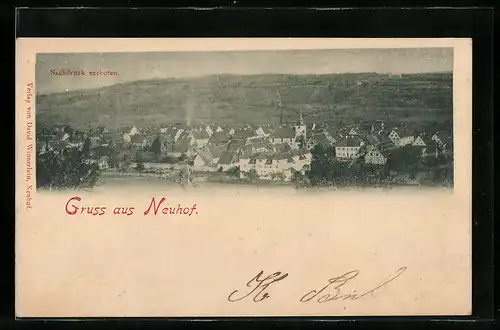 Nachdruck verboten.
Verlag von David Wimmerlein, Neuhof.
Gruss aus Neuhof.